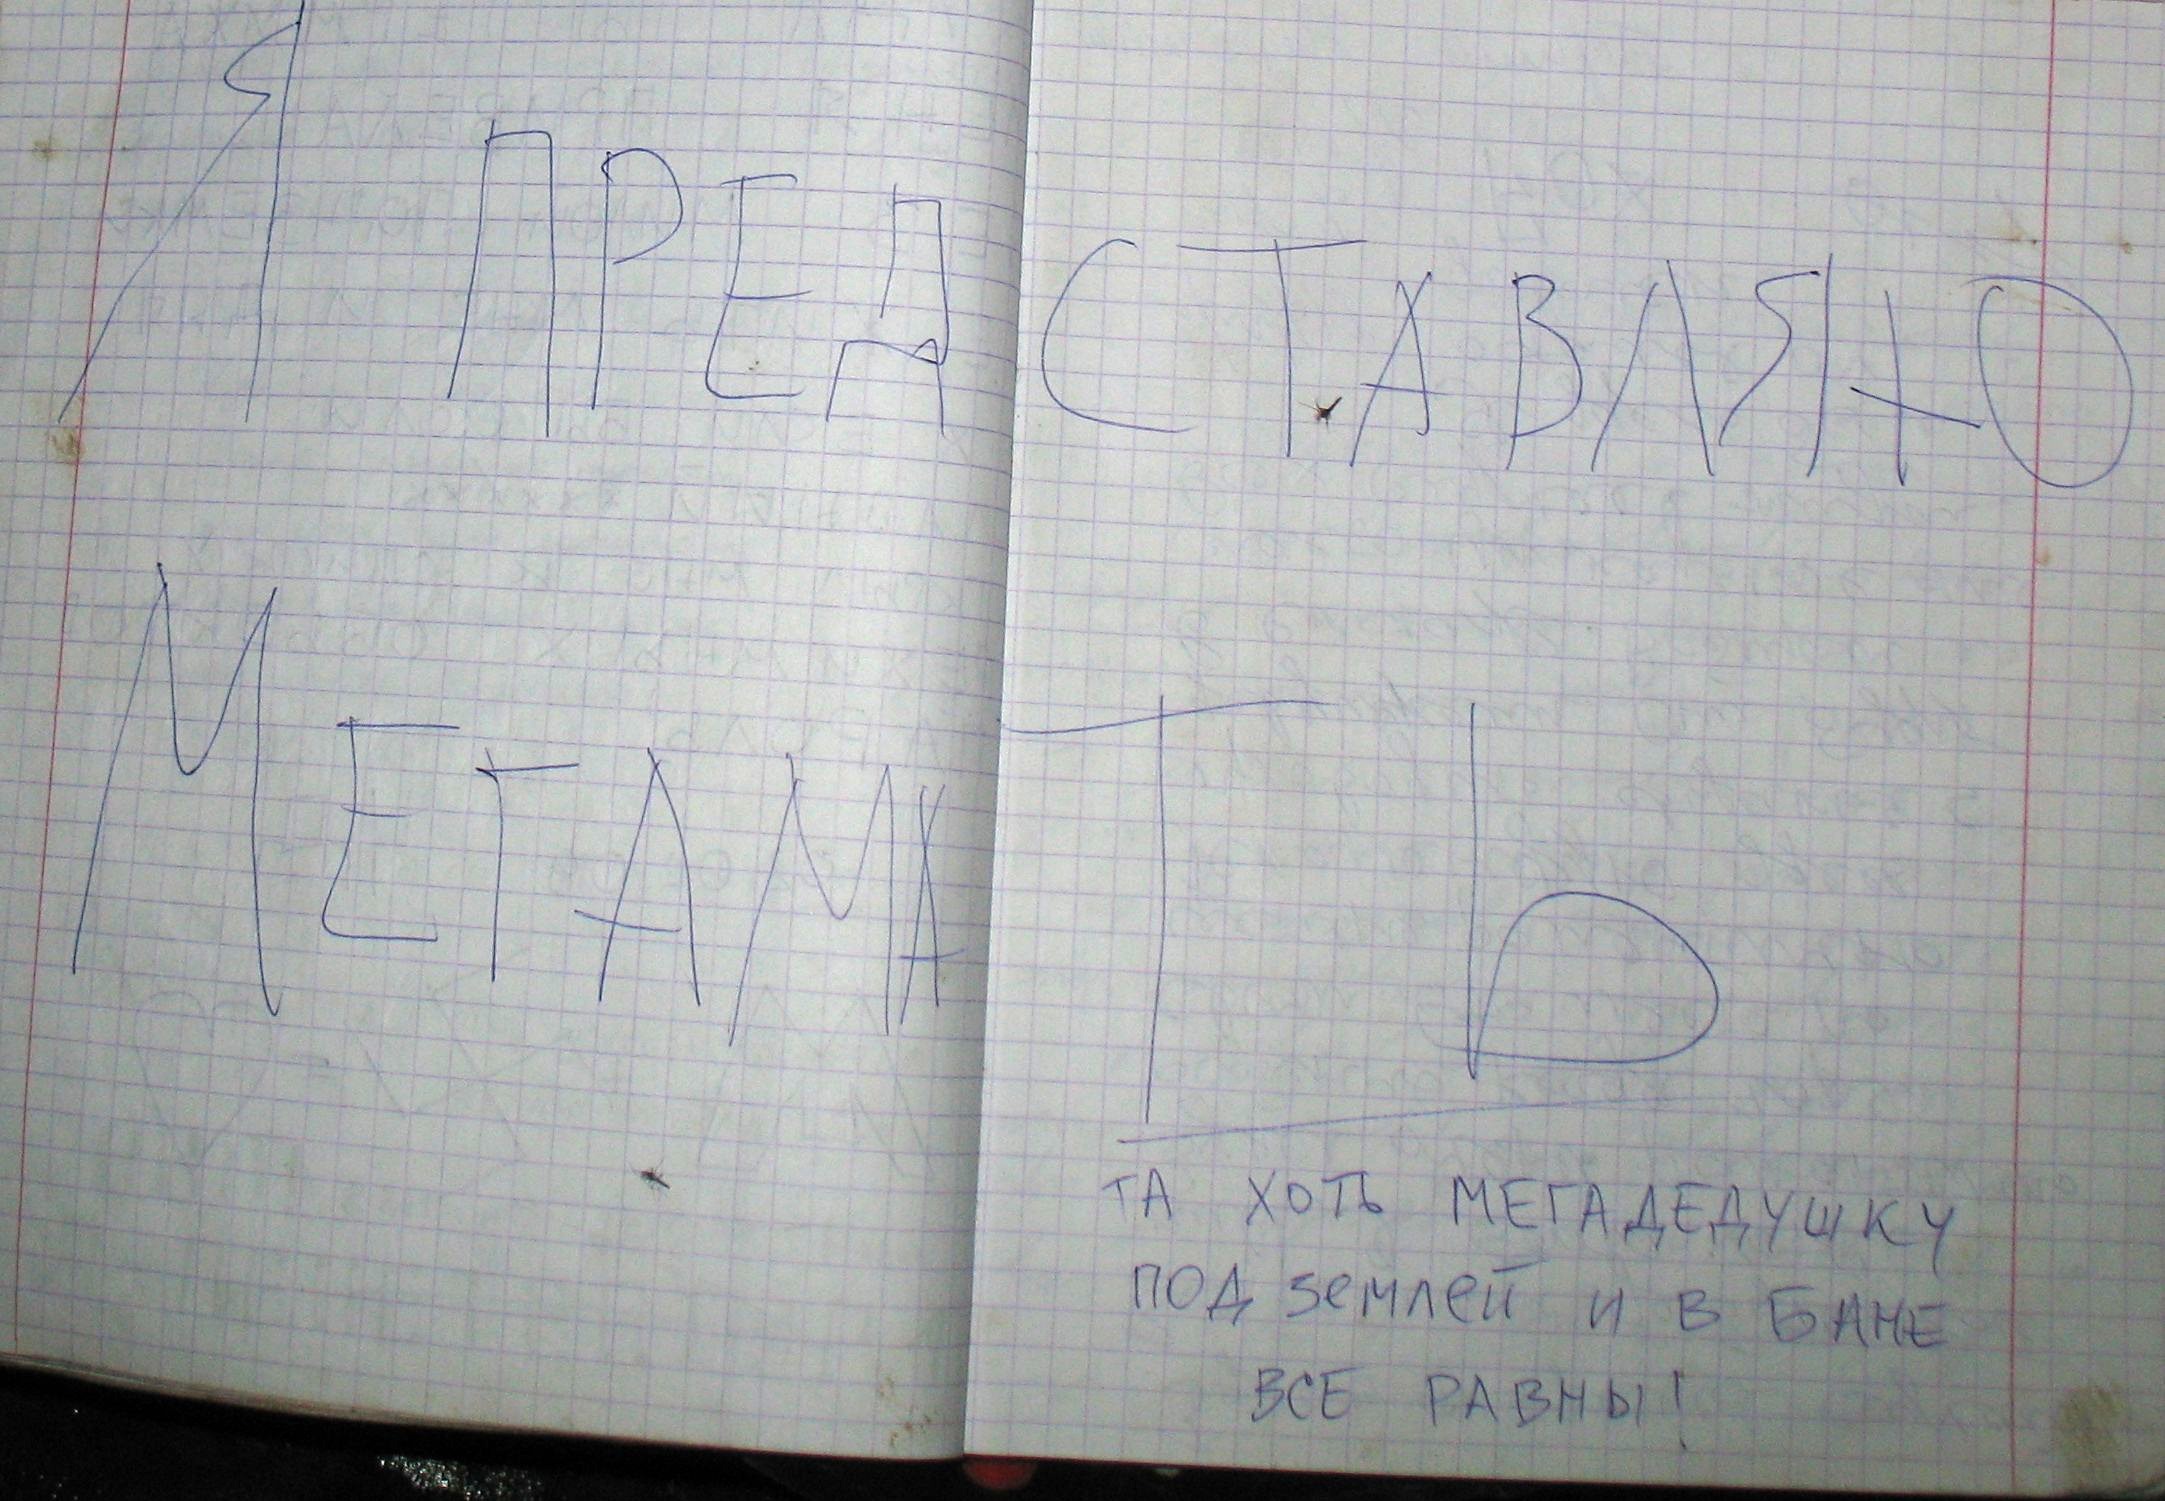 Я ПРЕДСТАВЛЯЮ
МЕГАМАТЬ
ТА ХОТЬ МЕГАДЕДУШКУ
ПОД ЗЕМЛЕЙ И В БАНЕ
ВСЕ РАВНЫ!